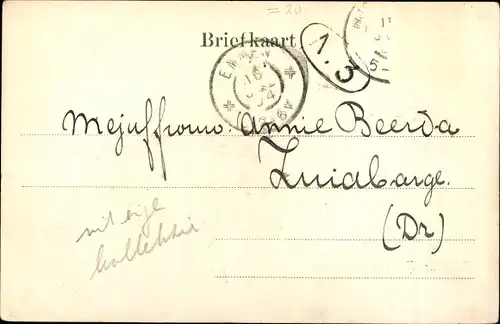 = 20
Briefkaart
1.3
EMMEN
16
04
5
Mejuffrouw Annie Beerda
Zuidbarge.
(Dr)
uit eige
kollektie